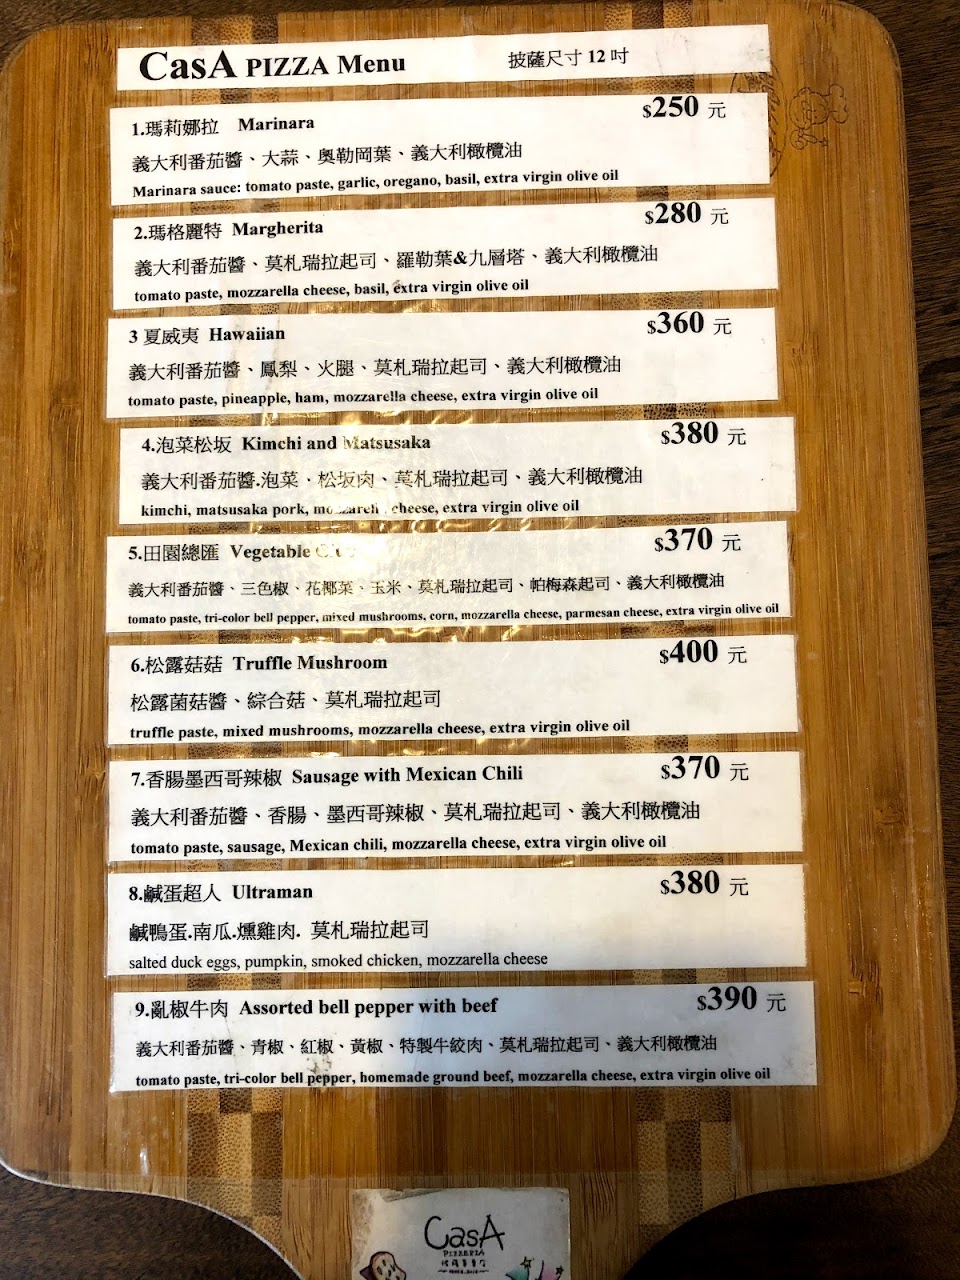 CasA PIZZA Menu 披薩尺寸 12 吋
1.瑪莉娜拉 Marinara $250 元
義大利番茄醬、大蒜、奧勒岡葉、義大利橄欖油
Marinara sauce: tomato paste, garlic, oregano, basil, extra virgin olive oil
2.瑪格麗特 Margherita $280 元
義大利番茄醬、莫札瑞拉起司、羅勒葉&九層塔、義大利橄欖油
tomato paste, mozzarella cheese, basil, extra virgin olive oil
3 夏威夷 Hawaiian $360 元
義大利番茄醬、鳳梨、火腿、莫札瑞拉起司、義大利橄欖油
tomato paste, pineapple, ham, mozzarella cheese, extra virgin olive oil
4.泡菜松坂 Kimchi and Matsusaka $380 元
義大利番茄醬.泡菜、松坂肉、莫札瑞拉起司、義大利橄欖油
kimchi, matsusaka pork, cheese, extra virgin olive oil
5.田園總匯 Vegetable $370 元
義大利番茄醬、三色椒、花椰菜、玉米、莫札瑞拉起司、帕梅森起司、義大利橄欖油
tomato paste, tri-color bell pepper, mixed mushrooms, corn, mozzarella cheese, parmesan cheese, extra virgin olive oil
6.松露菇菇 Truffle Mushroom $400 元
松露菌菇醬、綜合菇、莫札瑞拉起司
truffle paste, mixed mushrooms, mozzarella cheese, extra virgin olive oil
7.香腸墨西哥辣椒 Sausage with Mexican Chili $370 元
義大利番茄醬、香腸、墨西哥辣椒、莫札瑞拉起司、義大利橄欖油
tomato paste, sausage, Mexican chili, mozzarella cheese, extra virgin olive oil
8.鹹蛋超人 Ultraman $380 元
鹹鴨蛋.南瓜.燻雞肉. 莫札瑞拉起司
salted duck eggs, pumpkin, smoked chicken, mozzarella cheese
9.亂椒牛肉 Assorted bell pepper with beef $390 元
義大利番茄醬、青椒、紅椒、黃椒、特製牛絞肉、莫札瑞拉起司、義大利橄欖油
tomato paste, tri-color bell pepper, homemade ground beef, mozzarella cheese, extra virgin olive oil
CasA
PIZZERIA